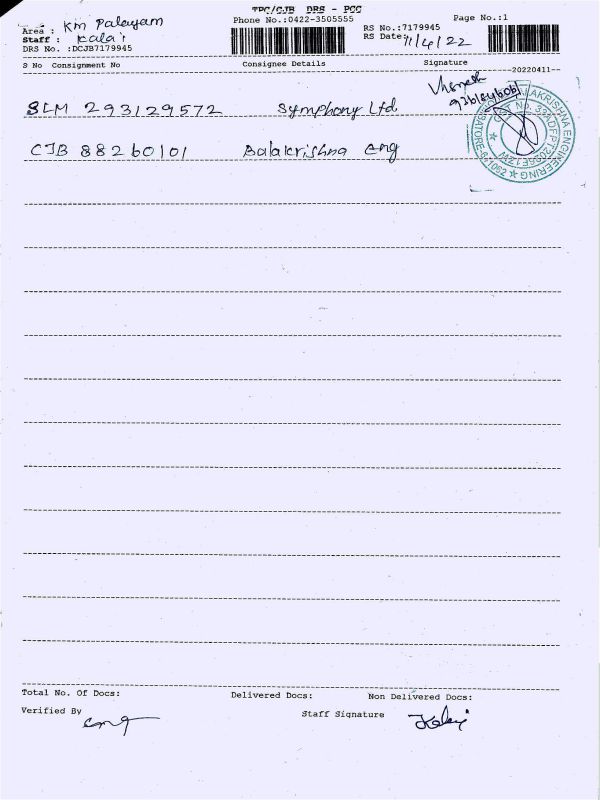 TPC/CJB DRS - PCC
Phone No.:0422-3505555
Page No.:1
Area : Km Palayam
Staff : Kalai
RS No.:7179945
DRS No. :DCJB7179945
RS Date: 11/4/22
S No Consignment No Consignee Details Signature
--20220411--
SLM 293129572 Symphony Ltd
CJB 88260101 Balakrishna eng
AKRISHNA ENGINEERING
Total No. Of Docs: Delivered Docs: Non Delivered Docs:
Verified By Staff Signature